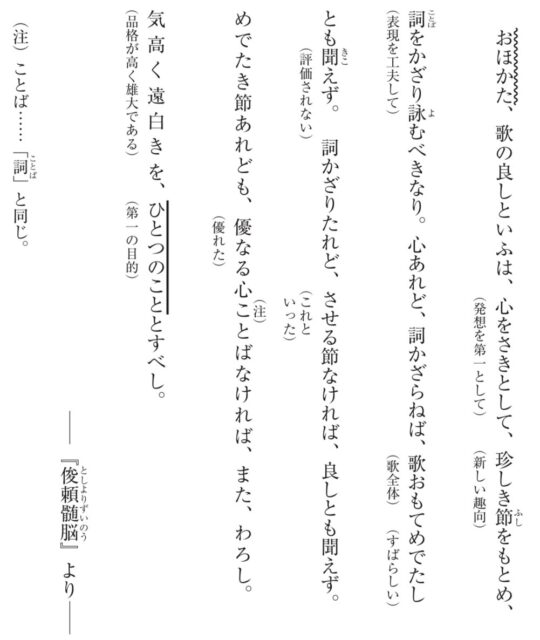 おほかた、歌の良しといふは、心をさきとして、珍しき節をもとめ、
（発想を第一として）（新しい趣向）
詞をかざり詠むべきなり。心あれど、詞かざらねば、歌おもてめでたし
（表現を工夫して）（歌全体）（すばらしい）
とも聞えず。詞かざりたれど、させる節なければ、良しとも聞えず。
（評価されない）（これといった）
めでたき節あれども、優なる心ことばなければ、また、わろし。
（優れた）（注）
気高く遠白きを、ひとつのこととすべし。
（品格が高く雄大である）（第一の目的）
――『俊頼髄脳』より――
（注）ことば……「詞」と同じ。